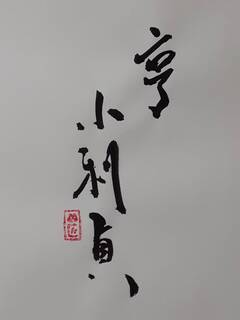 亨
小利貞